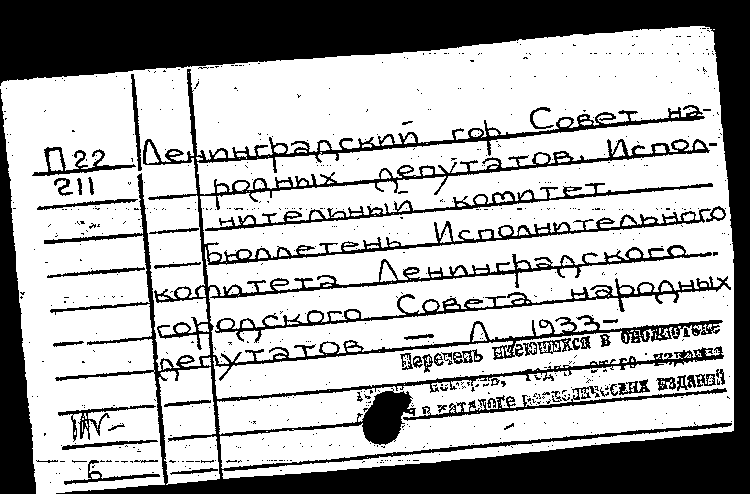 П 22 Ленинградский гор. Совет на-
211 родных депутатов. Испол-
нительный комитет.
Бюллетень Исполнительного
комитета Ленинградского
городского Совета народных
депутатов. — Л., 1933-
Перечень имеющихся в библиотеке
номеров, годов этого издания
в каталоге периодических изданий
6